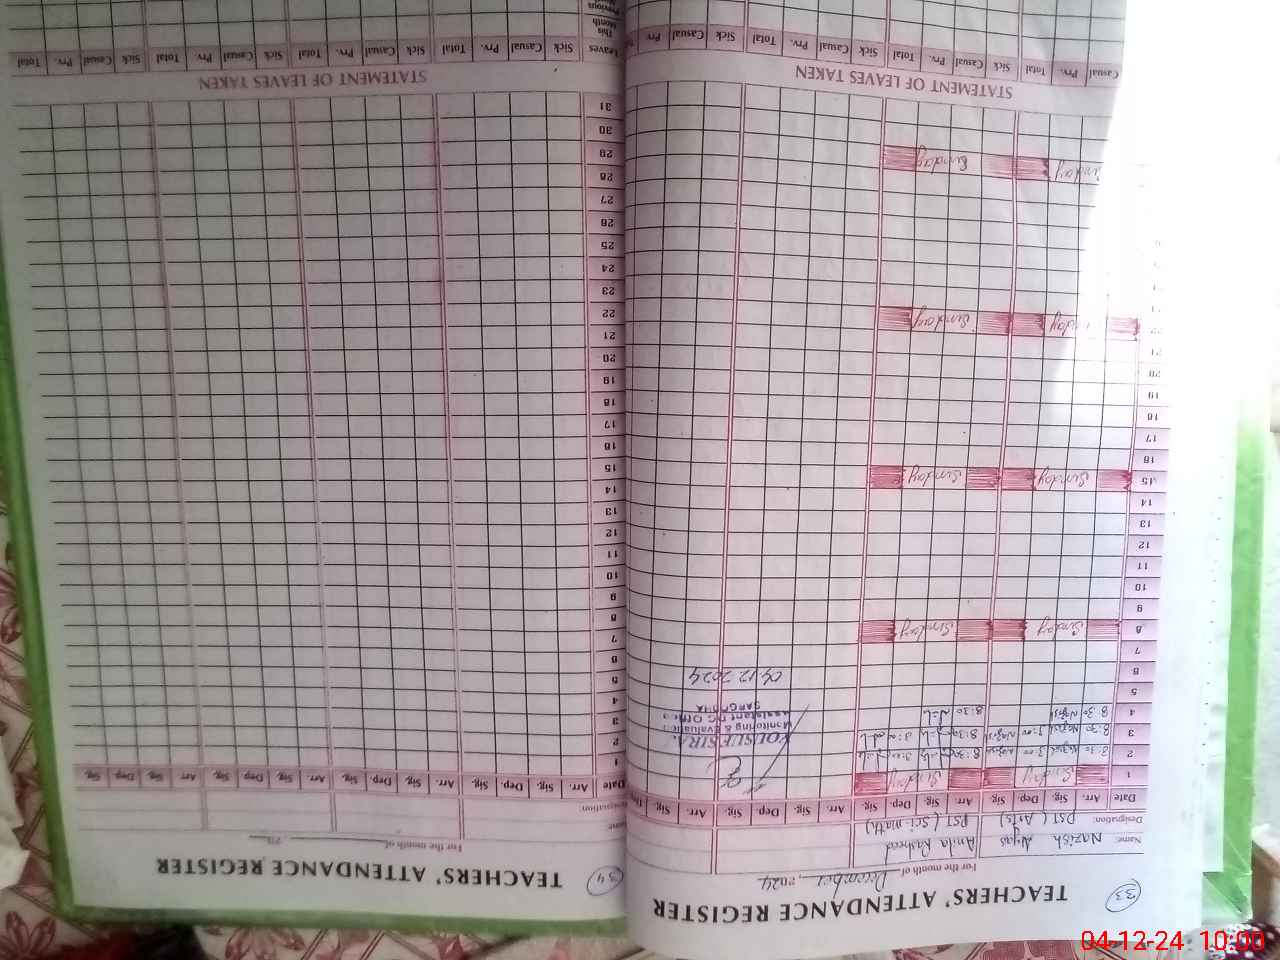 TEACHERS' ATTENDANCE REGISTER
33
For the month of December, 2024
Name: Nazish Niyas
Anila Rasheed
Designation: PST (Arts)
PST (Sci-math)
Date Arr. Sig. Dep Sig. Arr. Sig. Dep Sig. Arr. Sig. Dep Sig. Arr. Sig.
1 Sunday Sunday
2 8:30 3:00 8:30 3:00
3 8:30 3:00 8:30 3:00
4 8:30 8:30
5
6
7
8 Sunday Sunday
9
10
11
12
13
14
15 Sunday Sunday
16
17
18
19
20
21
22 Sunday Sunday
Sunday Sunday
YOUSUF SIRAJ
Monitoring & Evaluation
Assistant
SARGODHA
04.12.2024
STATEMENT OF LEAVES TAKEN
Casual Prv. Total Sick Casual Prv. Total Sick Casual Prv. Total Sick Casual Prv.
TEACHERS' ATTENDANCE REGISTER
34
For the month of 20
Name
Designation:
Date Arr. Sig. Dep. Sig. Arr. Sig. Dep Sig. Arr. Sig. Dep Sig. Arr. Sig. Dep Sig.
1
2
3
4
5
6
7
8
9
10
11
12
13
14
15
16
17
18
19
20
21
22
23
24
25
26
27
28
29
30
31
STATEMENT OF LEAVES TAKEN
Leaves Sick Casual Prv. Total Sick Casual Prv. Total Sick Casual Prv. Total Sick Casual Prv. Total
This Month
Previous
04-12-24 10:00